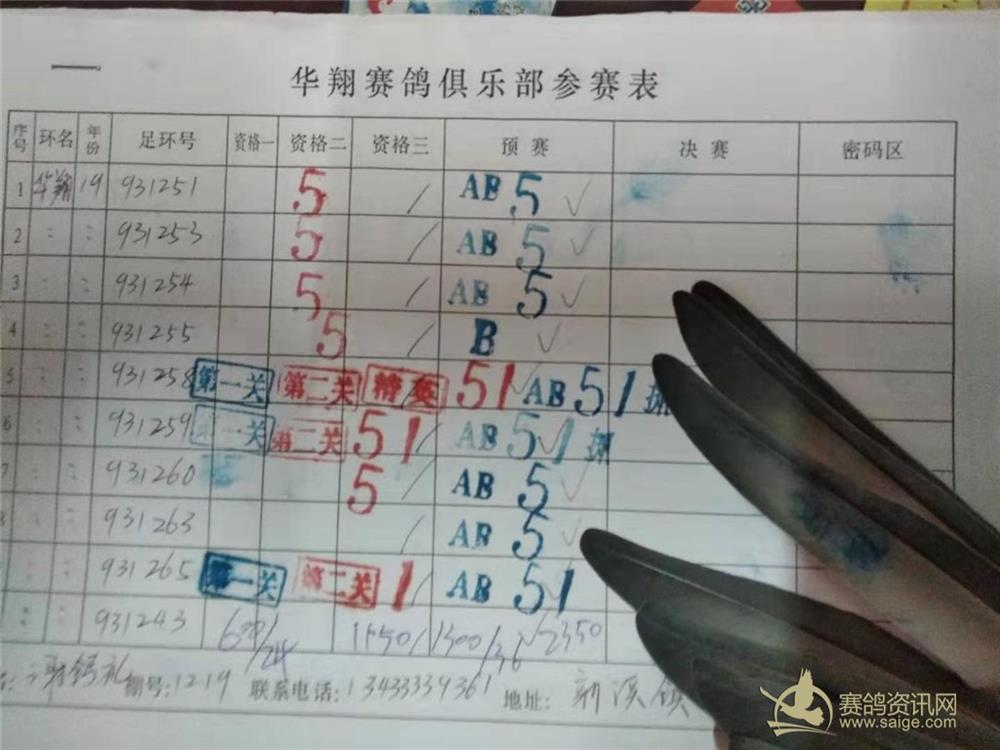 华翔赛鸽俱乐部参赛表
序号 环名 年份 足环号 资格一 资格二 资格三 预赛 决赛 密码区
1 华翔 19 931251 5 / AB 5 ✓
2 : : 931253 5 / AB 5 ✓
3 : : 931254 5 / AB 5 ✓
4 : : 931255 5 / B ✓
5 : : 931258 第一关 第二关 精赛 51 ✓ AB 51
6 : : 931259 第一关 第二关 51 / AB 51 ✓
7 : : 931260 5 / AB 5 ✓
8 : : 931263 / AB 5 ✓
: : 931265 第一关 第二关 1 / AB 51 ✓
: : 931243 /24 1150/ 1300/36 2350
棚号:1219 联系电话:13433339361 地址: 新溪镇
赛鸽资讯网
www.saige.com